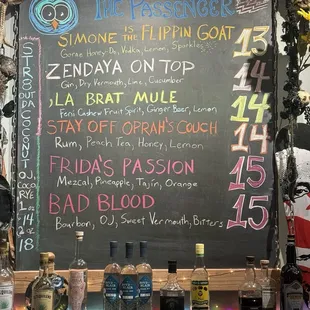 THE PASSENGER
SIMONE IS THE FLIPPIN GOAT 13
Gorae Honey-Do, Vodka, Lemon, Sparkles
ZENDAYA ON TOP 14
Gin, Dry Vermouth, Lime, Cucumber
LA BRAT MULE 14
Feni Cashew Fruit Spirit, Ginger Beer, Lemon
STAY OFF OPRAH'S COUCH 14
Rum, Peach Tea, Honey, Lemon
FRIDA'S PASSION 15
Mezcal, Pineapple, Tajín, Orange
BAD BLOOD 15
Bourbon, OJ, Sweet Vermouth, Bitters
STR8 OUTA COCONUT